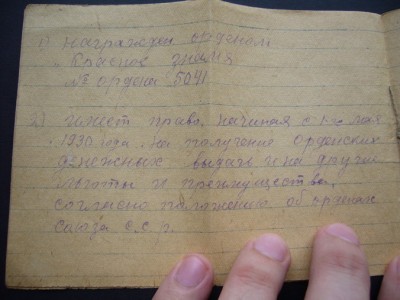 1) Награжден орденом
"Красное знамя
№ ордена 5041.
2) Имеет право, начиная с 1-го мая
1930 года на получение Орденских
денежных выдач и на другие
льготы и преимущества,
согласно положению об орденах
Союза С.С.Р.